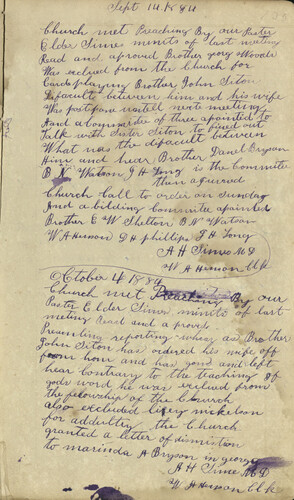 Sept 14 1884
Church met Preaching By our Paster
Elder Sims minits of last meeting
Read and aproved Brother georg Woods
Was exclued from the Church for
Cardsplaying Brother John Siton
Difacult between him and his wife
Was postpon untell next meeting
And a committee of three apointed to
Talk with Sister Siton to find out
What was the difacult between
Him and hear Brother Danel Bryson
B N Watson J H Long is the committee
Then agurned
Church Call to order on Sunday
And a bilding committee apointed
Brother E W Shelton B N Watson
W A Henson D H phillips J H Long
A H Sims M D
W A Henson Clk
October 4 1884
Church met Preaching By our
Paster Elder Sims minits of last
meting Read and aprovd
Presenting reporting whear as Brother
John Siton has ordered his wife off
from hom and has gond and left
hear Contrary to the teaching of
gods word he was exclued from
the felowship of the Church
also excluded lizey nickelson
for addultry the Church
granted a letter of dimistion
to marinda A Bryson in georga
A H Sims M D
W A Henson Clk